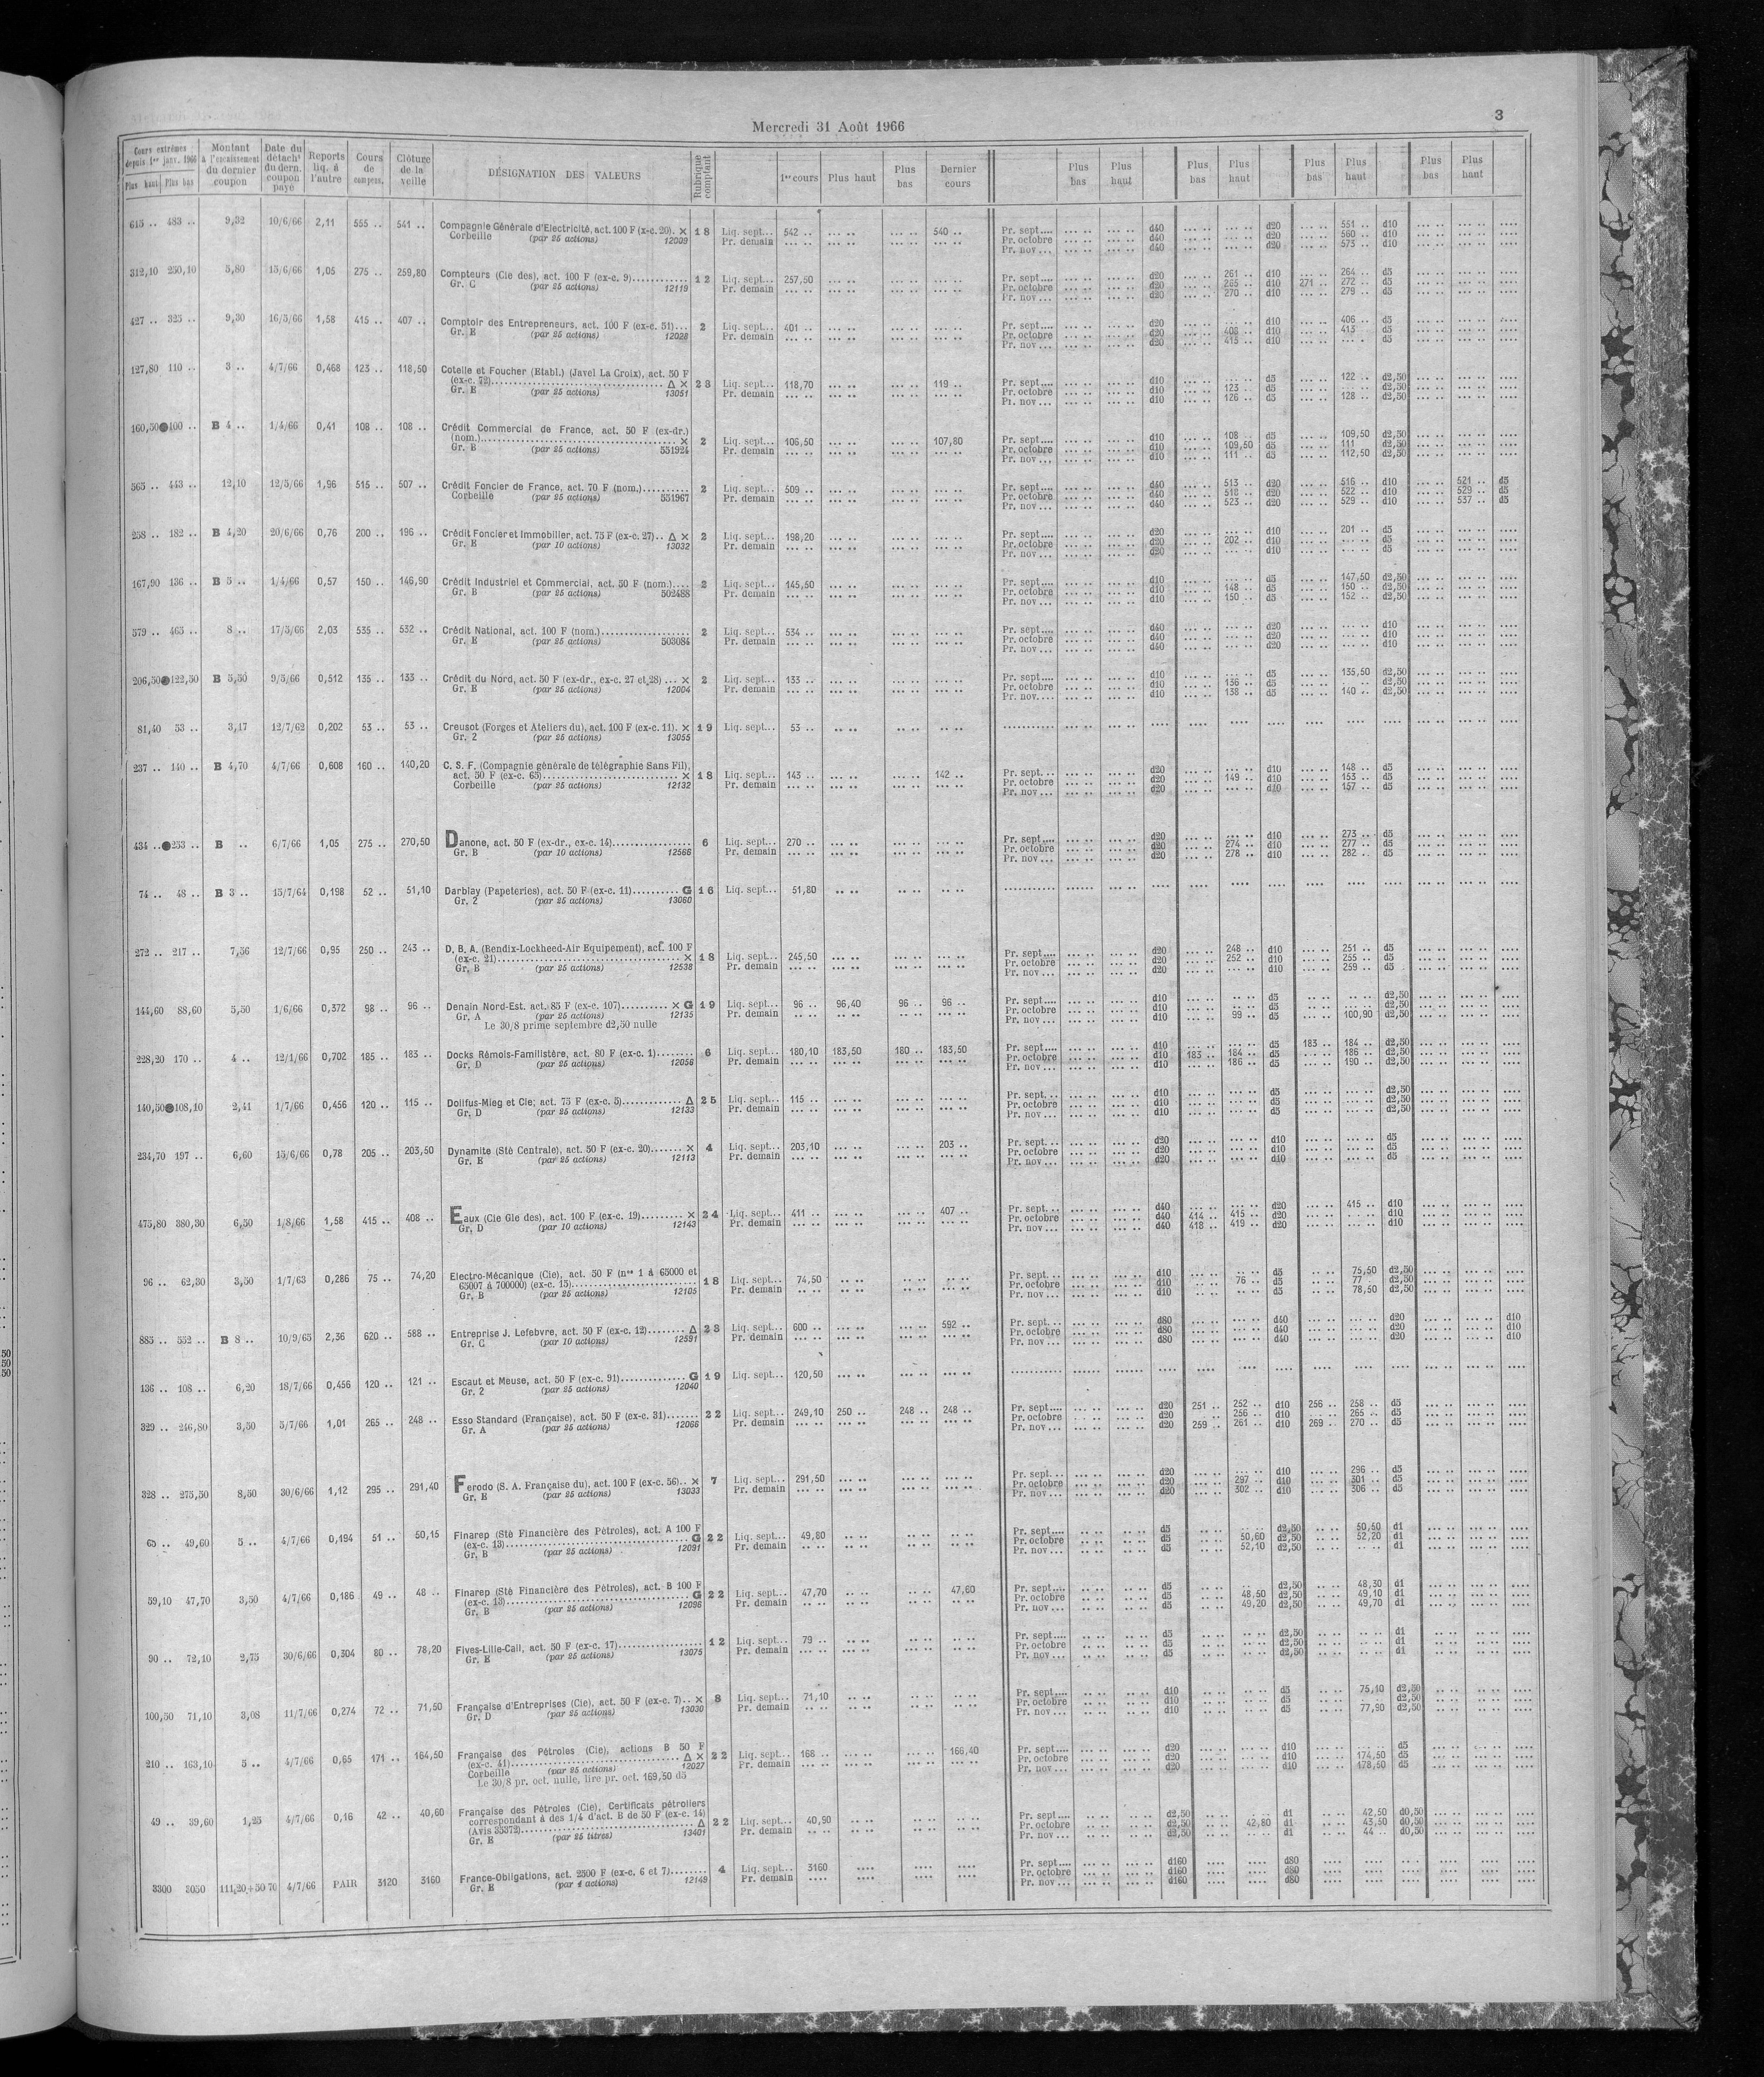 Mercredi 31 Août 1966
3
Cours extrêmes depuis 1er janv. 1966 Plus haut Plus bas | Montant à l'encaissement du dernier coupon | Date du détacht du dern. coupon payé | Reports liq. à l'autre | Cours de compens. | Clôture de la veille | DÉSIGNATION DES VALEURS | Rubrique comptant | 1er cours | Plus haut | Plus bas | Dernier cours | Plus bas | Plus haut | Plus bas | Plus haut | Plus bas | Plus haut | Plus bas | Plus haut
615 .. 483 .. 9,32 10/6/66 2,11 555 .. 541 .. Compagnie Générale d'Electricité, act. 100 F (x-c. 20). × 18 Liq. sept... 542 .. 540 .. Pr. sept.... d40 d20 551 .. d10
Corbeille (par 25 actions) 12009 Pr. demain Pr. octobre d40 d20 560 .. d10
Pr. nov... d40 d20 573 .. d10
312,10 250,10 5,80 15/6/66 1,05 275 .. 259,80 Compteurs (Cie des), act. 100 F (ex-c. 9)........... 12 Liq. sept... 257,50 Pr. sept.... d20 261 .. d10 264 .. d5
Gr. C (par 25 actions) 12119 Pr. demain Pr. octobre d20 265 .. d10 271 .. 272 .. d5
Pr. nov... d20 270 .. d10 279 .. d5
427 .. 325 .. 9,30 16/5/66 1,58 415 .. 407 .. Comptoir des Entrepreneurs, act. 100 F (ex-c. 51)... 2 Liq. sept... 401 .. Pr. sept.... d20 d10 406 .. d5
Gr. E (par 25 actions) 12028 Pr. demain Pr. octobre d20 408 .. d10 413 .. d5
Pr. nov... d20 415 .. d10 d5
127,80 110 .. 3 .. 4/7/66 0,468 123 .. 118,50 Cotelle et Foucher (Etabl.) (Javel La Croix), act. 50 F
(ex-c. 72)........ Δ × 23 Liq. sept... 118,70 119 .. Pr. sept.... d10 d5 122 .. d2,50
Gr. E (par 25 actions) 13051 Pr. demain Pr. octobre d10 123 .. d5 d2,50
Pr. nov... d10 126 .. d5 128 .. d2,50
160,50●100 .. B 4 .. 1/4/66 0,41 108 .. 108 .. Crédit Commercial de France, act. 50 F (ex-dr.)
(nom.)........ × 2 Liq. sept... 106,50 107,80 Pr. sept.... d10 108 .. d5 109,50 d2,50
Gr. B (par 25 actions) 551924 Pr. demain Pr. octobre d10 109,50 d5 111 .. d2,50
Pr. nov... d10 111 .. d5 112,50 d2,50
565 .. 443 .. 12,10 12/5/66 1,96 515 .. 507 .. Crédit Foncier de France, act. 70 F (nom.).......... 2 Liq. sept... 509 .. Pr. sept.... d40 513 .. d20 516 .. d10 521 .. d5
Corbeille (par 25 actions) 551967 Pr. demain Pr. octobre d40 518 .. d20 522 .. d10 529 .. d5
Pr. nov... d40 523 .. d20 529 .. d10 537 .. d5
258 .. 182 .. B 4,20 20/6/66 0,76 200 .. 196 .. Crédit Foncier et Immobilier, act. 75 F (ex-c. 27).. Δ × 2 Liq. sept... 198,20 Pr. sept.... d20 d10 201 .. d5
Gr. E (par 10 actions) 13032 Pr. demain Pr. octobre d20 202 .. d10 d5
Pr. nov... d20 d10 d5
167,90 136 .. B 5 .. 1/4/66 0,57 150 .. 146,90 Crédit Industriel et Commercial, act. 50 F (nom.).... 2 Liq. sept... 145,50 Pr. sept.... d10 d5 147,50 d2,50
Gr. B (par 25 actions) 502488 Pr. demain Pr. octobre d10 148 .. d5 150 .. d2,50
Pr. nov... d10 150 .. d5 152 .. d2,50
579 .. 465 .. 8 .. 17/5/66 2,03 535 .. 532 .. Crédit National, act. 100 F (nom.).................. 2 Liq. sept... 534 .. Pr. sept.... d40 d20 d10
Gr. E (par 25 actions) 503084 Pr. demain Pr. octobre d40 d20 d10
Pr. nov... d40 d20 d10
206,50●122,50 B 5,50 9/5/66 0,512 135 .. 133 .. Crédit du Nord, act. 50 F (ex-dr., ex-c. 27 et 28)... × 2 Liq. sept... 133 .. Pr. sept.... d10 d5 135,50 d2,50
Gr. E (par 25 actions) 12004 Pr. demain Pr. octobre d10 136 .. d5 d2,50
Pr. nov.... d10 138 .. d5 140 .. d2,50
81,40 53 .. 3,17 12/7/62 0,202 53 .. 53 .. Creusot (Forges et Ateliers du), act. 100 F (ex-c. 11). × 19 Liq. sept... 53 ..
Gr. 2 (par 25 actions) 13055
237 .. 140 .. B 4,70 4/7/66 0,608 160 .. 140,20 C. S. F. (Compagnie générale de télégraphie Sans Fil),
act. 50 F (ex-c. 65)........ × 18 Liq. sept... 143 .. 142 .. Pr. sept... d20 d10 148 .. d5
Corbeille (par 25 actions) 12132 Pr. demain Pr. octobre d20 149 .. d10 153 .. d5
Pr. nov... d20 d10 157 .. d5
434 ..●253 .. B .. 6/7/66 1,05 275 .. 270,50 Danone, act. 50 F (ex-dr., ex-c. 14)................ 6 Liq. sept... 270 .. Pr. sept.... d20 d10 273 .. d5
Gr. B (par 10 actions) 12566 Pr. demain Pr. octobre d20 274 .. d10 277 .. d5
Pr. nov... d20 278 .. d10 282 .. d5
74 .. 48 .. B 3 .. 15/7/64 0,198 52 .. 51,10 Darblay (Papeteries), act. 50 F (ex-c. 11).......... G 16 Liq. sept... 51,80
Gr. 2 (par 25 actions) 13060
272 .. 217 .. 7,56 12/7/66 0,95 250 .. 243 .. D. B. A. (Bendix-Lockheed-Air Equipement), act. 100 F
(ex-c. 21)........ × 18 Liq. sept... 245,50 Pr. sept.... d20 248 .. d10 251 .. d5
Gr. B (par 25 actions) 12538 Pr. demain Pr. octobre d20 252 .. d10 255 .. d5
Pr. nov... d20 d10 259 .. d5
144,60 88,60 5,50 1/6/66 0,372 98 .. 96 .. Denain Nord-Est. act. 85 F (ex-c. 107).......... × G 19 Liq. sept... 96 .. 96,40 96 .. 96 .. Pr. sept.... d10 d5 d2,50
Gr. A (par 25 actions) 12135 Pr. demain Pr. octobre d10 d5 d2,50
Le 30/8 prime septembre d2,50 nulle Pr. nov... d10 99 .. d5 100,90 d2,50
228,20 170 .. 4 .. 12/1/66 0,702 185 .. 183 .. Docks Rémois-Familistère, act. 80 F (ex-c. 1)........ 6 Liq. sept... 180,10 183,50 180 .. 183,50 Pr. sept.... d10 d5 183 .. 184 .. d2,50
Gr. D (par 25 actions) 12056 Pr. demain Pr. octobre d10 183 .. 184 .. d5 186 .. d2,50
Pr. nov... d10 186 .. d5 190 .. d2,50
140,50●108,10 2,41 1/7/66 0,456 120 .. 115 .. Dollfus-Mieg et Cie, act. 75 F (ex-c. 5)............ Δ 25 Liq. sept... 115 .. Pr. sept... d10 d5 d2,50
Gr. D (par 25 actions) 12133 Pr. demain Pr. octobre d10 d5 d2,50
Pr. nov... d10 d5 d2,50
234,70 197 .. 6,60 15/6/66 0,78 205 .. 203,50 Dynamite (Sté Centrale), act. 50 F (ex-c. 20)....... × 4 Liq. sept... 203,10 203 .. Pr. sept... d20 d10 d5
Gr. E (par 25 actions) 12113 Pr. demain Pr. octobre d20 d10 d5
Pr. nov... d20 d10 d5
475,80 380,30 6,50 1/8/66 1,58 415 .. 408 .. Eaux (Cie Gle des), act. 100 F (ex-c. 19)......... × 24 Liq. sept... 411 .. 407 .. Pr. sept... d40 d20 415 .. d10
Gr. D (par 10 actions) 12143 Pr. demain Pr. octobre d40 414 .. 415 .. d20 d10
Pr. nov... d40 418 .. 419 .. d20 d10
96 .. 62,30 3,50 1/7/63 0,286 75 .. 74,20 Electro-Mécanique (Cie), act. 50 F (nos 1 à 65000 et
65007 à 700000) (ex-c. 15)........ 18 Liq. sept... 74,50 Pr. sept... d10 d5 75,50 d2,50
Gr. B (par 25 actions) 12105 Pr. demain Pr. octobre d10 76 .. d5 77 d2,50
Pr. nov... d10 d5 78,50 d2,50
885 .. 552 .. B 8 .. 10/9/65 2,36 620 .. 588 .. Entreprise J. Lefebvre, act. 50 F (ex-c. 12)........ Δ 23 Liq. sept... 600 .. 592 .. Pr. sept... d80 d40 d20 d10
Gr. C (par 10 actions) 12591 Pr. demain Pr. octobre d80 d40 d20 d10
Pr. nov... d80 d40 d20 d10
136 .. 108 .. 6,20 18/7/66 0,456 120 .. 121 .. Escaut et Meuse, act. 50 F (ex-c. 91).............. G 19 Liq. sept... 120,50
Gr. 2 (par 25 actions) 12040
329 .. 246,80 3,50 5/7/66 1,01 265 .. 248 .. Esso Standard (Française), act. 50 F (ex-c. 31)....... 22 Liq. sept... 249,10 250 .. 248 .. 248 .. Pr. sept.... d20 251 .. 252 .. d10 256 .. 258 .. d5
Gr. A (par 25 actions) 12066 Pr. demain Pr. octobre d20 256 .. d10 265 .. d5
Pr. nov... d20 259 .. 261 .. d10 269 .. 270 .. d5
328 .. 275,50 8,50 30/6/66 1,12 295 .. 291,40 Ferodo (S. A. Française du), act. 100 F (ex-c. 56).. × 7 Liq. sept... 291,50 Pr. sept... d20 d10 296 .. d5
Gr. E (par 25 actions) 13033 Pr. demain Pr. octobre d20 297 .. d10 301 .. d5
Pr. nov... d20 302 .. d10 306 .. d5
65 .. 49,60 5 .. 4/7/66 0,194 51 .. 50,15 Finarep (Sté Financière des Pétroles), act. A 100 F
(ex-c. 13)........ G 22 Liq. sept... 49,80 Pr. sept.... d5 d2,50 50,50 d1
Gr. B (par 25 actions) 12091 Pr. demain Pr. octobre d5 50,60 d2,50 52,20 d1
Pr. nov... d5 52,10 d2,50 d1
59,10 47,70 3,50 4/7/66 0,186 49 .. 48 .. Finarep (Sté Financière des Pétroles), act. B 100 F
(ex-c. 13)........ G 22 Liq. sept... 47,70 47,60 Pr. sept.... d5 d2,50 48,30 d1
Gr. B (par 25 actions) 12096 Pr. demain Pr. octobre d5 48,50 d2,50 49,10 d1
Pr. nov... d5 49,20 d2,50 49,70 d1
90 .. 72,10 2,75 30/6/66 0,304 80 .. 78,20 Fives-Lille-Cail, act. 50 F (ex-c. 17)................. 12 Liq. sept... 79 .. Pr. sept.... d5 d2,50 d1
Gr. E (par 25 actions) 13075 Pr. demain Pr. octobre d5 d2,50 d1
Pr. nov... d5 d2,50 d1
100,50 71,10 3,08 11/7/66 0,274 72 .. 71,50 Française d'Entreprises (Cie), act. 50 F (ex-c. 7).. × 8 Liq. sept... 71,10 Pr. sept.... d10 d5 75,10 d2,50
Gr. D (par 25 actions) 13030 Pr. demain Pr. octobre d10 d5 d2,50
Pr. nov... d10 d5 77,90 d2,50
210 .. 163,10 5 .. 4/7/66 0,65 171 .. 164,50 Française des Pétroles (Cie), actions B 50 F
(ex-c. 41)........ Δ × 22 Liq. sept... 168 .. 166,40 Pr. sept.... d20 d10 d5
Corbeille (par 25 actions) 12027 Pr. demain Pr. octobre d20 d10 174,50 d5
Le 30/8 pr. oct. nulle, lire pr. oct. 169,50 d5 Pr. nov... d20 d10 178,50 d5
49 .. 39,60 1,25 4/7/66 0,16 42 .. 40,60 Française des Pétroles (Cie), Certificats pétroliers
correspondant à des 1/4 d'act. B de 50 F (ex-c. 14)
(Avis 35372)........ Δ 22 Liq. sept... 40,90 Pr. sept.... d2,50 d1 42,50 d0,50
Gr. E (par 25 titres) 13401 Pr. demain Pr. octobre d2,50 42,80 d1 43,50 d0,50
Pr. nov... d2,50 d1 44 .. d0,50
3300 3050 111,20+50 70 4/7/66 PAIR 3120 3160 Franco-Obligations, act. 2500 F (ex-c. 6 et 7)........ 4 Liq. sept... 3160 Pr. sept.... d160 d80
Gr. E (par 1 actions) 12149 Pr. demain Pr. octobre d160 d80
Pr. nov... d160 d80
50
50
50